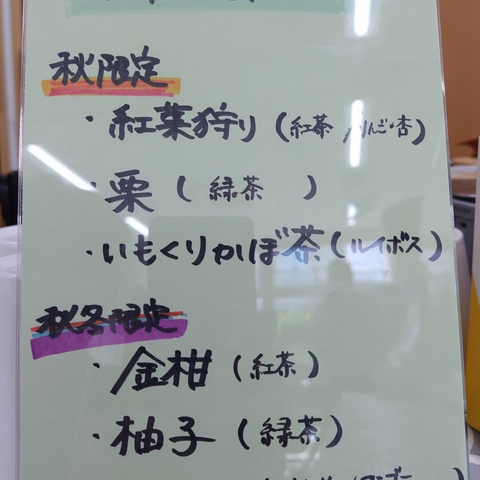 秋限定
・紅葉狩り(紅茶 りんご・杏)
・栗(緑茶)
・いもくりかぼ茶(ルイボス)
秋冬限定
・金柑(紅茶)
・柚子(緑茶)